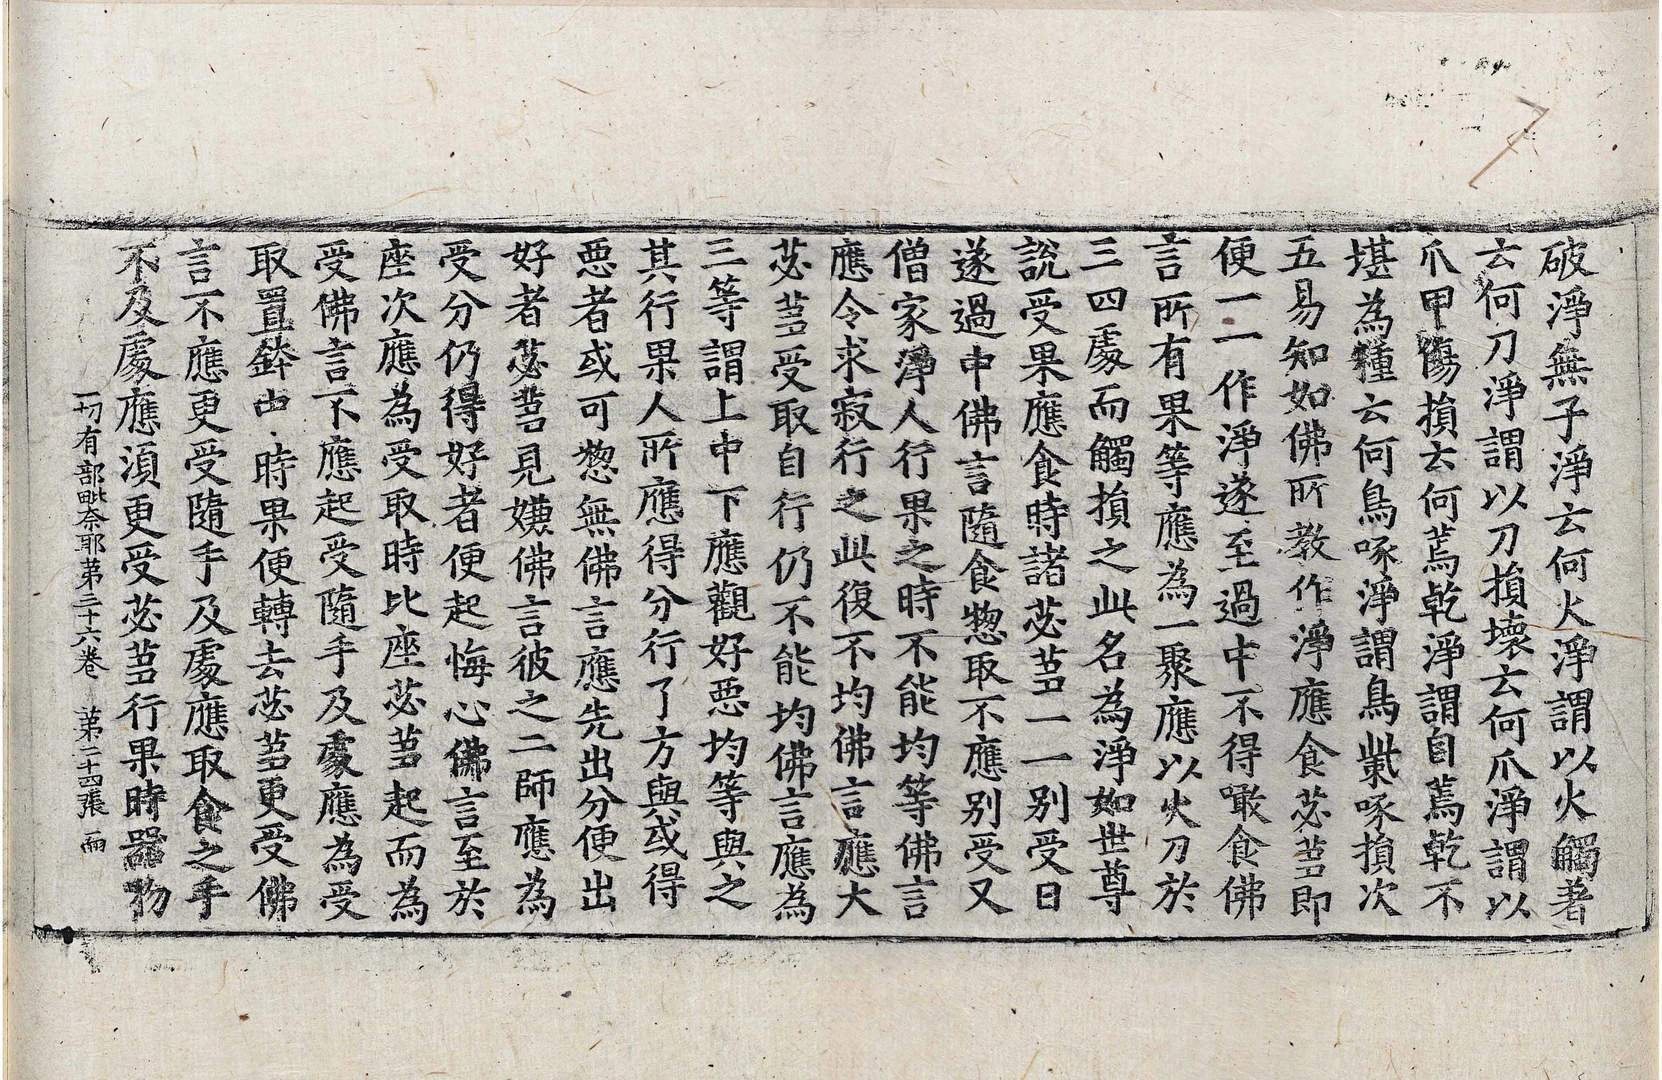 破淨無子淨云何火淨謂以火觸著
云何刀淨謂以刀損壞云何爪淨謂以
爪甲傷損云何蔫乾淨謂自蔫乾不
堪為種云何鳥啄淨謂鳥觜啄損次
五易知如佛所教作淨應食苾芻即
便一一作淨遂至過中不得噉食佛
言所有果等應為一聚應以火刀於
三四處而觸損之此名為淨如世尊
說受果應食時諸苾芻一一別受日
遂過中佛言隨食惣取不應別受又
僧家淨人行果之時不能均等佛言
應令求寂行之此復不均佛言應大
苾芻受取自行仍不能均佛言應為
三等謂上中下應觀好惡均等與之
其行果人所應得分行了方與或得
惡者或可惣無佛言應先出分便出
好者苾芻見嫌佛言彼之二師應為
受分仍得好者便起悔心佛言至於
座次應為受取時比座苾芻起而為
受佛言不應起受隨手及處應為受
取置鉢中時果便轉去苾芻更受佛
言不應更受隨手及處應取食之手
不及處應須更受苾芻行果時器物
一切有部毗奈耶第三十六卷 第二十四張 而